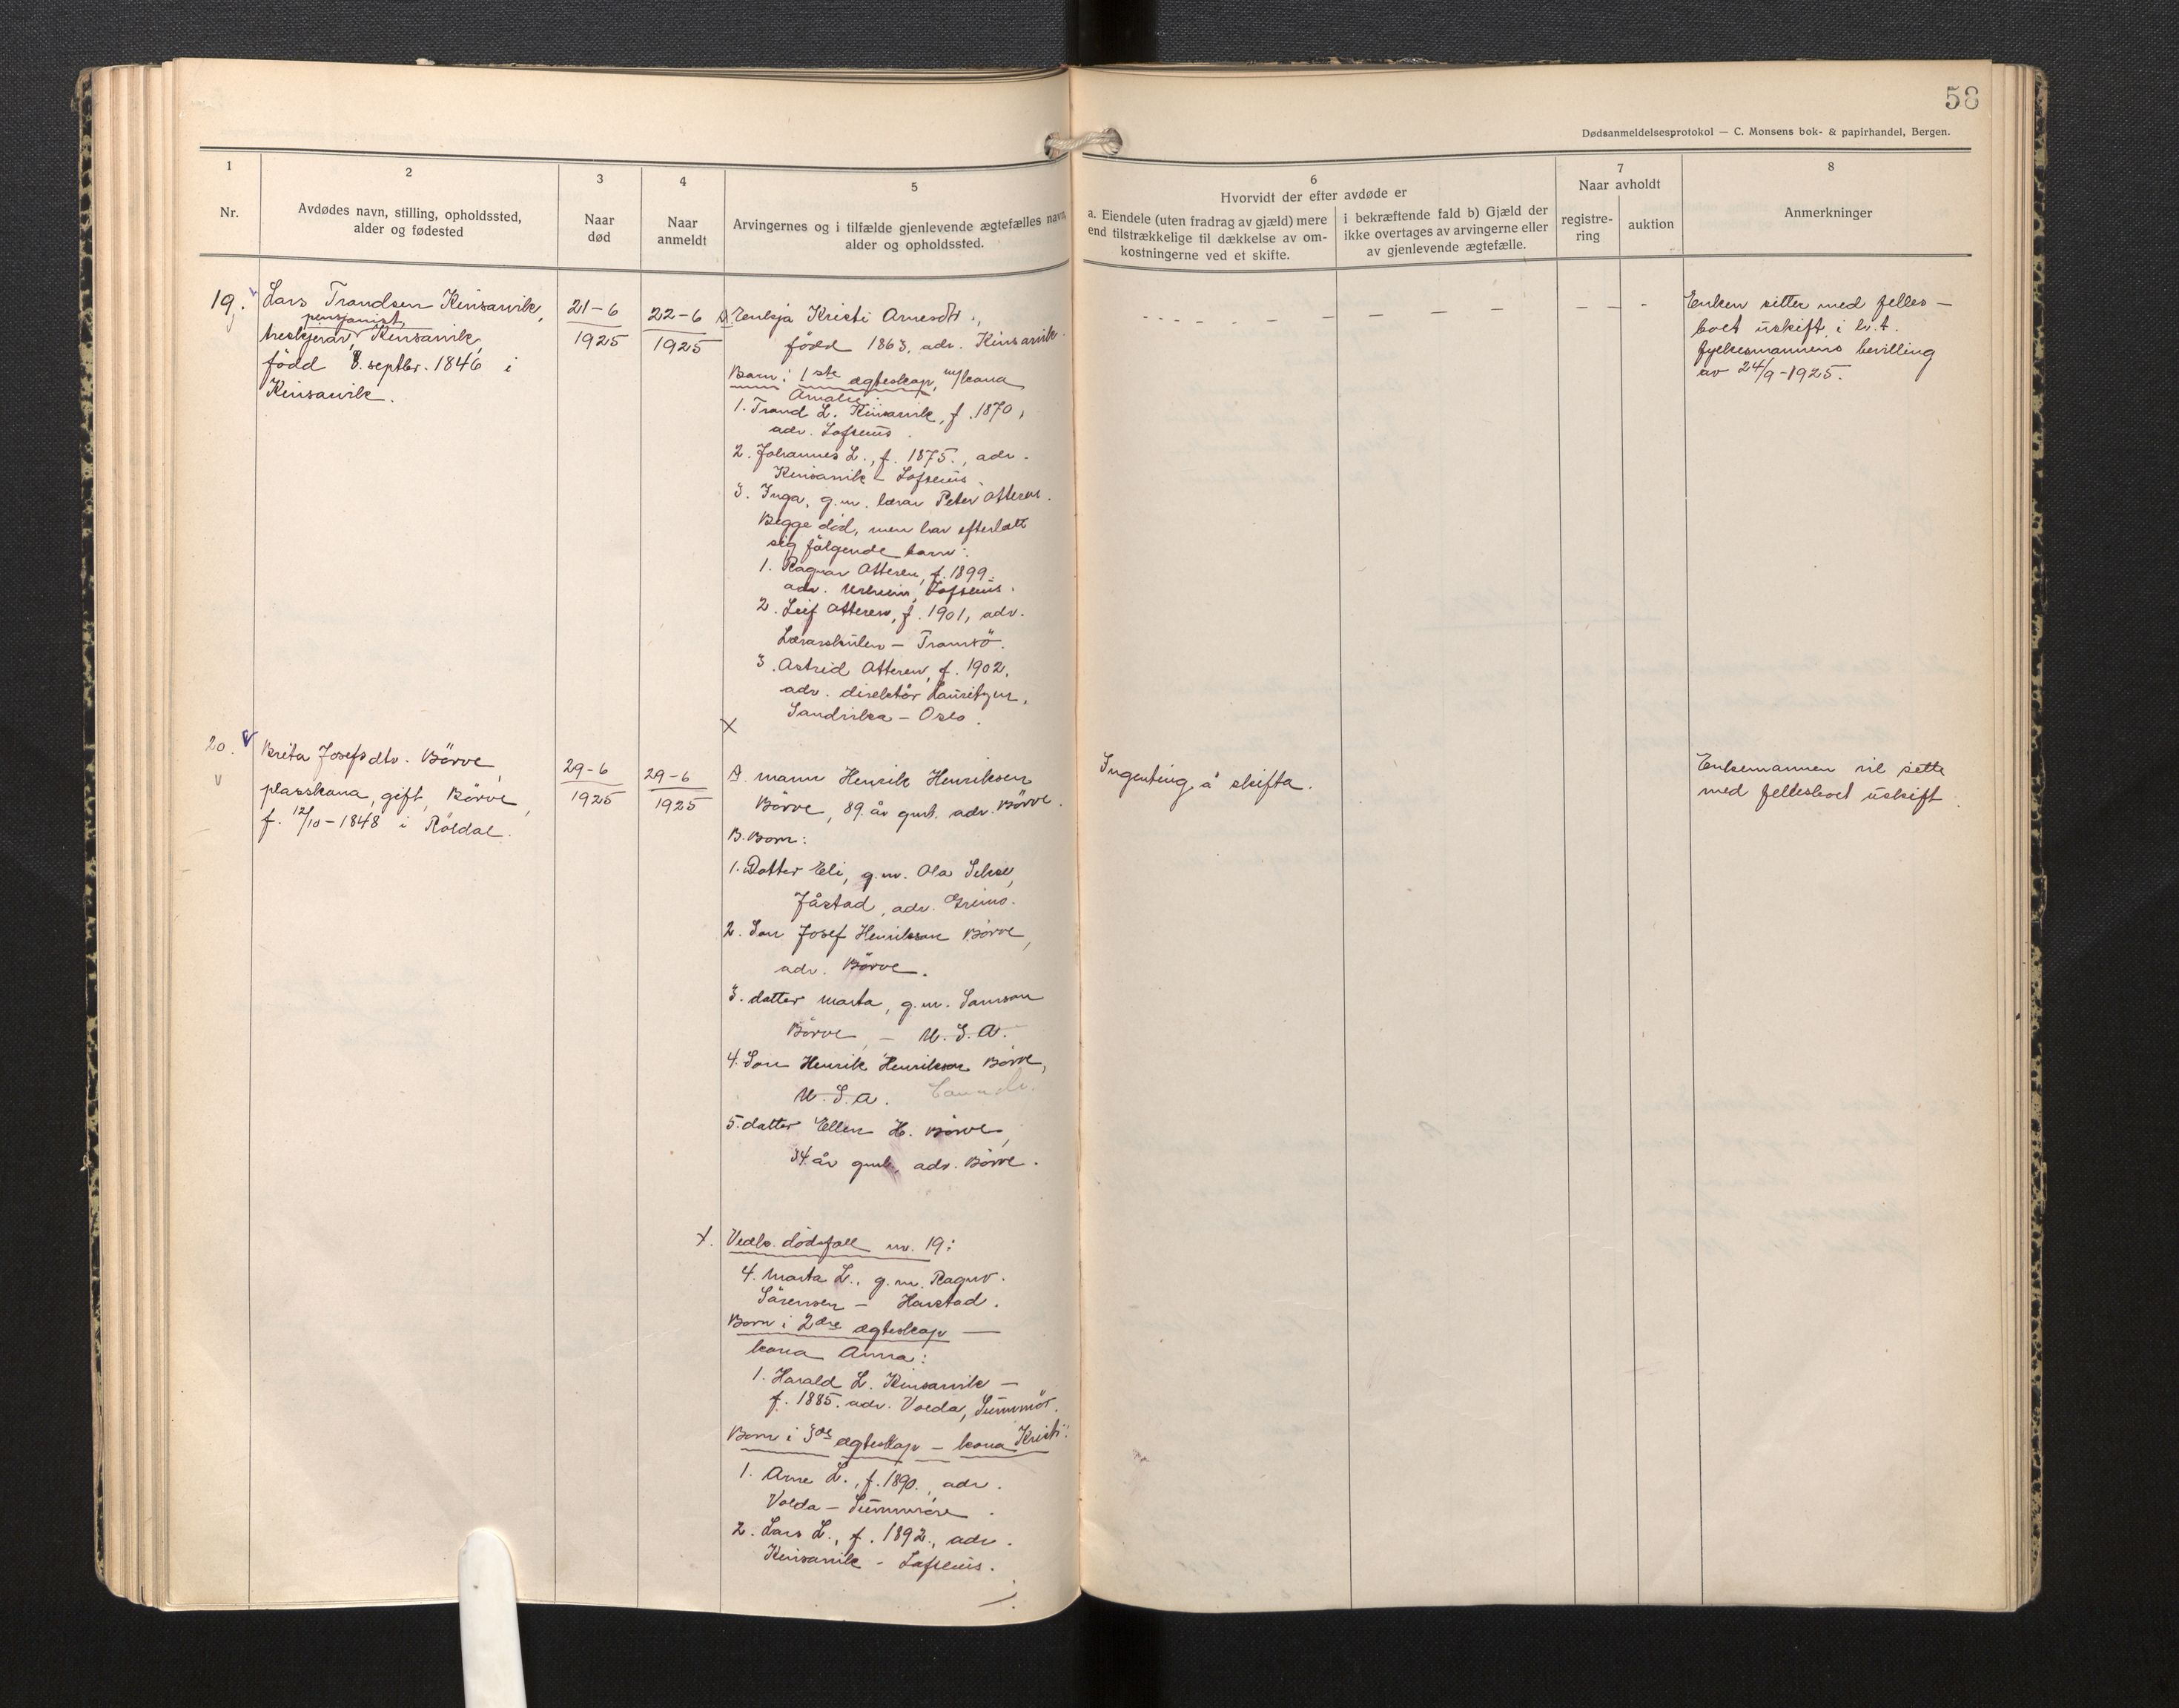 58
Dødsanmeldelsesprotokol — C. Monsens bok- & papirhandel, Bergen.
1
Nr.
2
Avdødes navn, stilling, opholdssted,
alder og fødested
3
Naar
død
4
Naar
anmeldt
5
Arvingernes og i tilfælde gjenlevende ægtefælles navn,
alder og opholdssted.
6
Hvorvidt der efter avdøde er
a. Eiendele (uten fradrag av gjæld) mere
end tilstrækkelige til dækkelse av om-
kostningerne ved et skifte.
i bekræftende fald b) Gjæld der
ikke overtages av arvingerne eller
av gjenlevende ægtefælle.
7
Naar avholdt
registre-
ring
auktion
8
Anmerkninger
19.
Lars Trondsen Kinsarvik,
pensjonist,
treskjerar, Kinsarvik,
född 8. septbr. 1846 i
Kinsarvik.
21-6
1925
22-6
1925
A. Enkja Kristi Arnesdtr.,
född 1863, adr. Kinsarvik.
Barn i 1ste ægteskap, m/kona
Amalie:
1. Trond L. Kinsarvik, f. 1870,
adr. Lofthus.
2. Johannes L., f. 1875., adr.
Kinsarvik - Lofthus.
3. Inga, g.m. lærar Peter Atteren.
Begge död, men har efterlatt
sig fölgende barn:
1. Ragnar Atteren, f. 1899.
adr. Utheim, Lofthus.
2. Leif Atteren, f. 1901, adr.
Lærarskulen - Tromsö.
3. Astrid Atteren, f. 1902.
adr. direktör
Sandvika - Oslo.
X
- - - - - - - - - -
Enken sitter med felles-
boet uskift i h.t.
fylkesmannens bevilling
av 24/9-1925.
20.
Brita Josefsdtr. Börve,
plasskona, gift, Börve,
f. 12/10-1848 i Röldal.
29-6
1925
29-6
1925
A. mann Henrik Henriksen
Börve, 89. år gml. adr. Börve.
B. Born:
1. Datter Eli, g.m. Ola Sekse,
Jåstad, adr. Grimo.
2. Son Josef Henrikson Börve,
adr. Börve.
3. datter Marta, g.m. Samson
Börve, - U.S.A.
4. Son Henrik Henrikson Börve,
U.S.A. Canada.
5. datter Ellen H. Börve,
34 år gml, adr. Börve.
Ingenting å skifta.
Enkemannen vil sitte
med fellesboet uskift.
X. Vedk. dödsfall nr. 19:
4. Marta L., g.m. Ragnv.
Sörensen - Harstad.
Born i 2dre ægteskap -
kona Anna:
1. Harald L. Kinsarvik -
f. 1885. adr. Volda, Sunnmör.
Born i 3de ægteskap - kona Kristi:
1. Arne L., f. 1890., adr.
Volda - Sunnmöre.
2. Lars L., f. 1892., adr.
Kinsarvik - Lofthus.